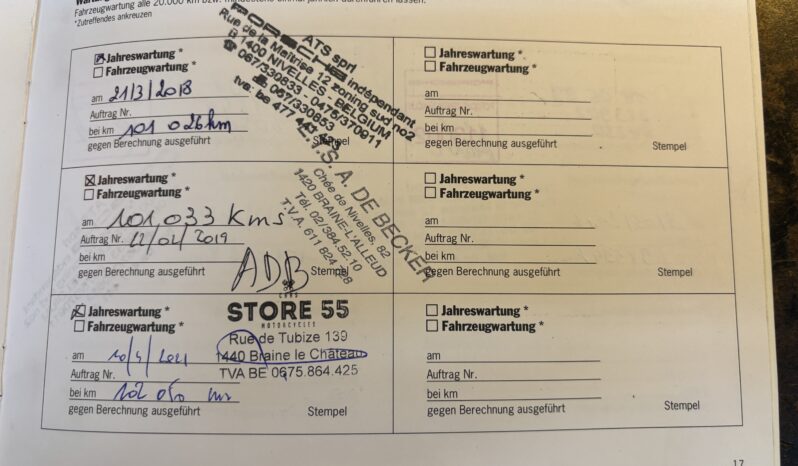 Fahrzeugwartung alle 20.000 km bzw. mindestens einmal jährlich durchführen lassen.
*Zutreffendes ankreuzen
Jahreswartung *
Fahrzeugwartung *
am 21/3/2018
Auftrag Nr.
bei km 101 026 km
gegen Berechnung ausgeführt Stempel
ATS sprl
PORSCHE indépendant
Rue de la Maîtrise 12 zoning sud no2
B 1400 NIVELLES - BELGIUM
067/330833 - 0475/370911
067/330853
tva: be 477 441
Jahreswartung *
Fahrzeugwartung *
am
Auftrag Nr.
bei km
gegen Berechnung ausgeführt Stempel
Jahreswartung *
Fahrzeugwartung *
am 101.033 kms
Auftrag Nr. 12/04/2019
bei km
gegen Berechnung ausgeführt Stempel
ADB
S. A. DE BECKER
Chée de Nivelles, 82
1420 BRAINE-L'ALLEUD
Tél. 02/384.52.10
T.V.A. 611 824
Jahreswartung *
Fahrzeugwartung *
am
Auftrag Nr.
bei km
gegen Berechnung ausgeführt Stempel
Jahreswartung *
Fahrzeugwartung *
am 10/4/2021
Auftrag Nr.
bei km 102 050 km
gegen Berechnung ausgeführt Stempel
CARS
STORE 55
MOTORCYCLES
Rue de Tubize 139
1440 Braine le Château
TVA BE 0675.864.425
Jahreswartung *
Fahrzeugwartung *
am
Auftrag Nr.
bei km
gegen Berechnung ausgeführt Stempel
17